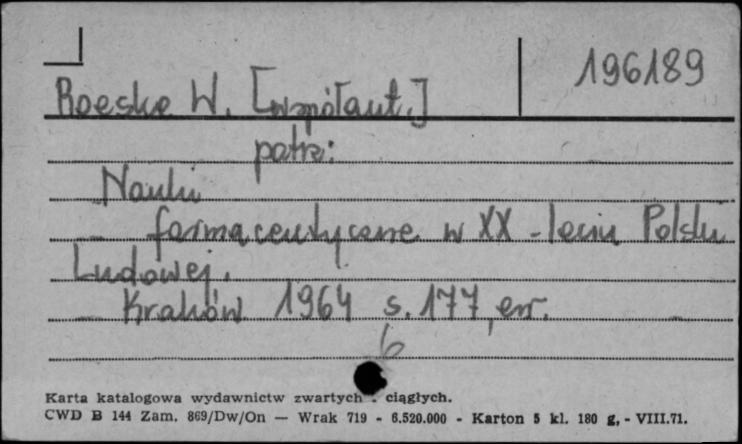 196189
Roeske W. [współaut.]
patrz:
Nauki
farmaceutyczne w XX-leciu Polski
Ludowej.
Kraków 1964 s. 177, err.
6
Karta katalogowa wydawnictw zwartych ciągłych.
CWD B 144 Zam. 869/Dw/On — Wrak 719 - 6.520.000 - Karton 5 kl. 180 g, - VIII.71.